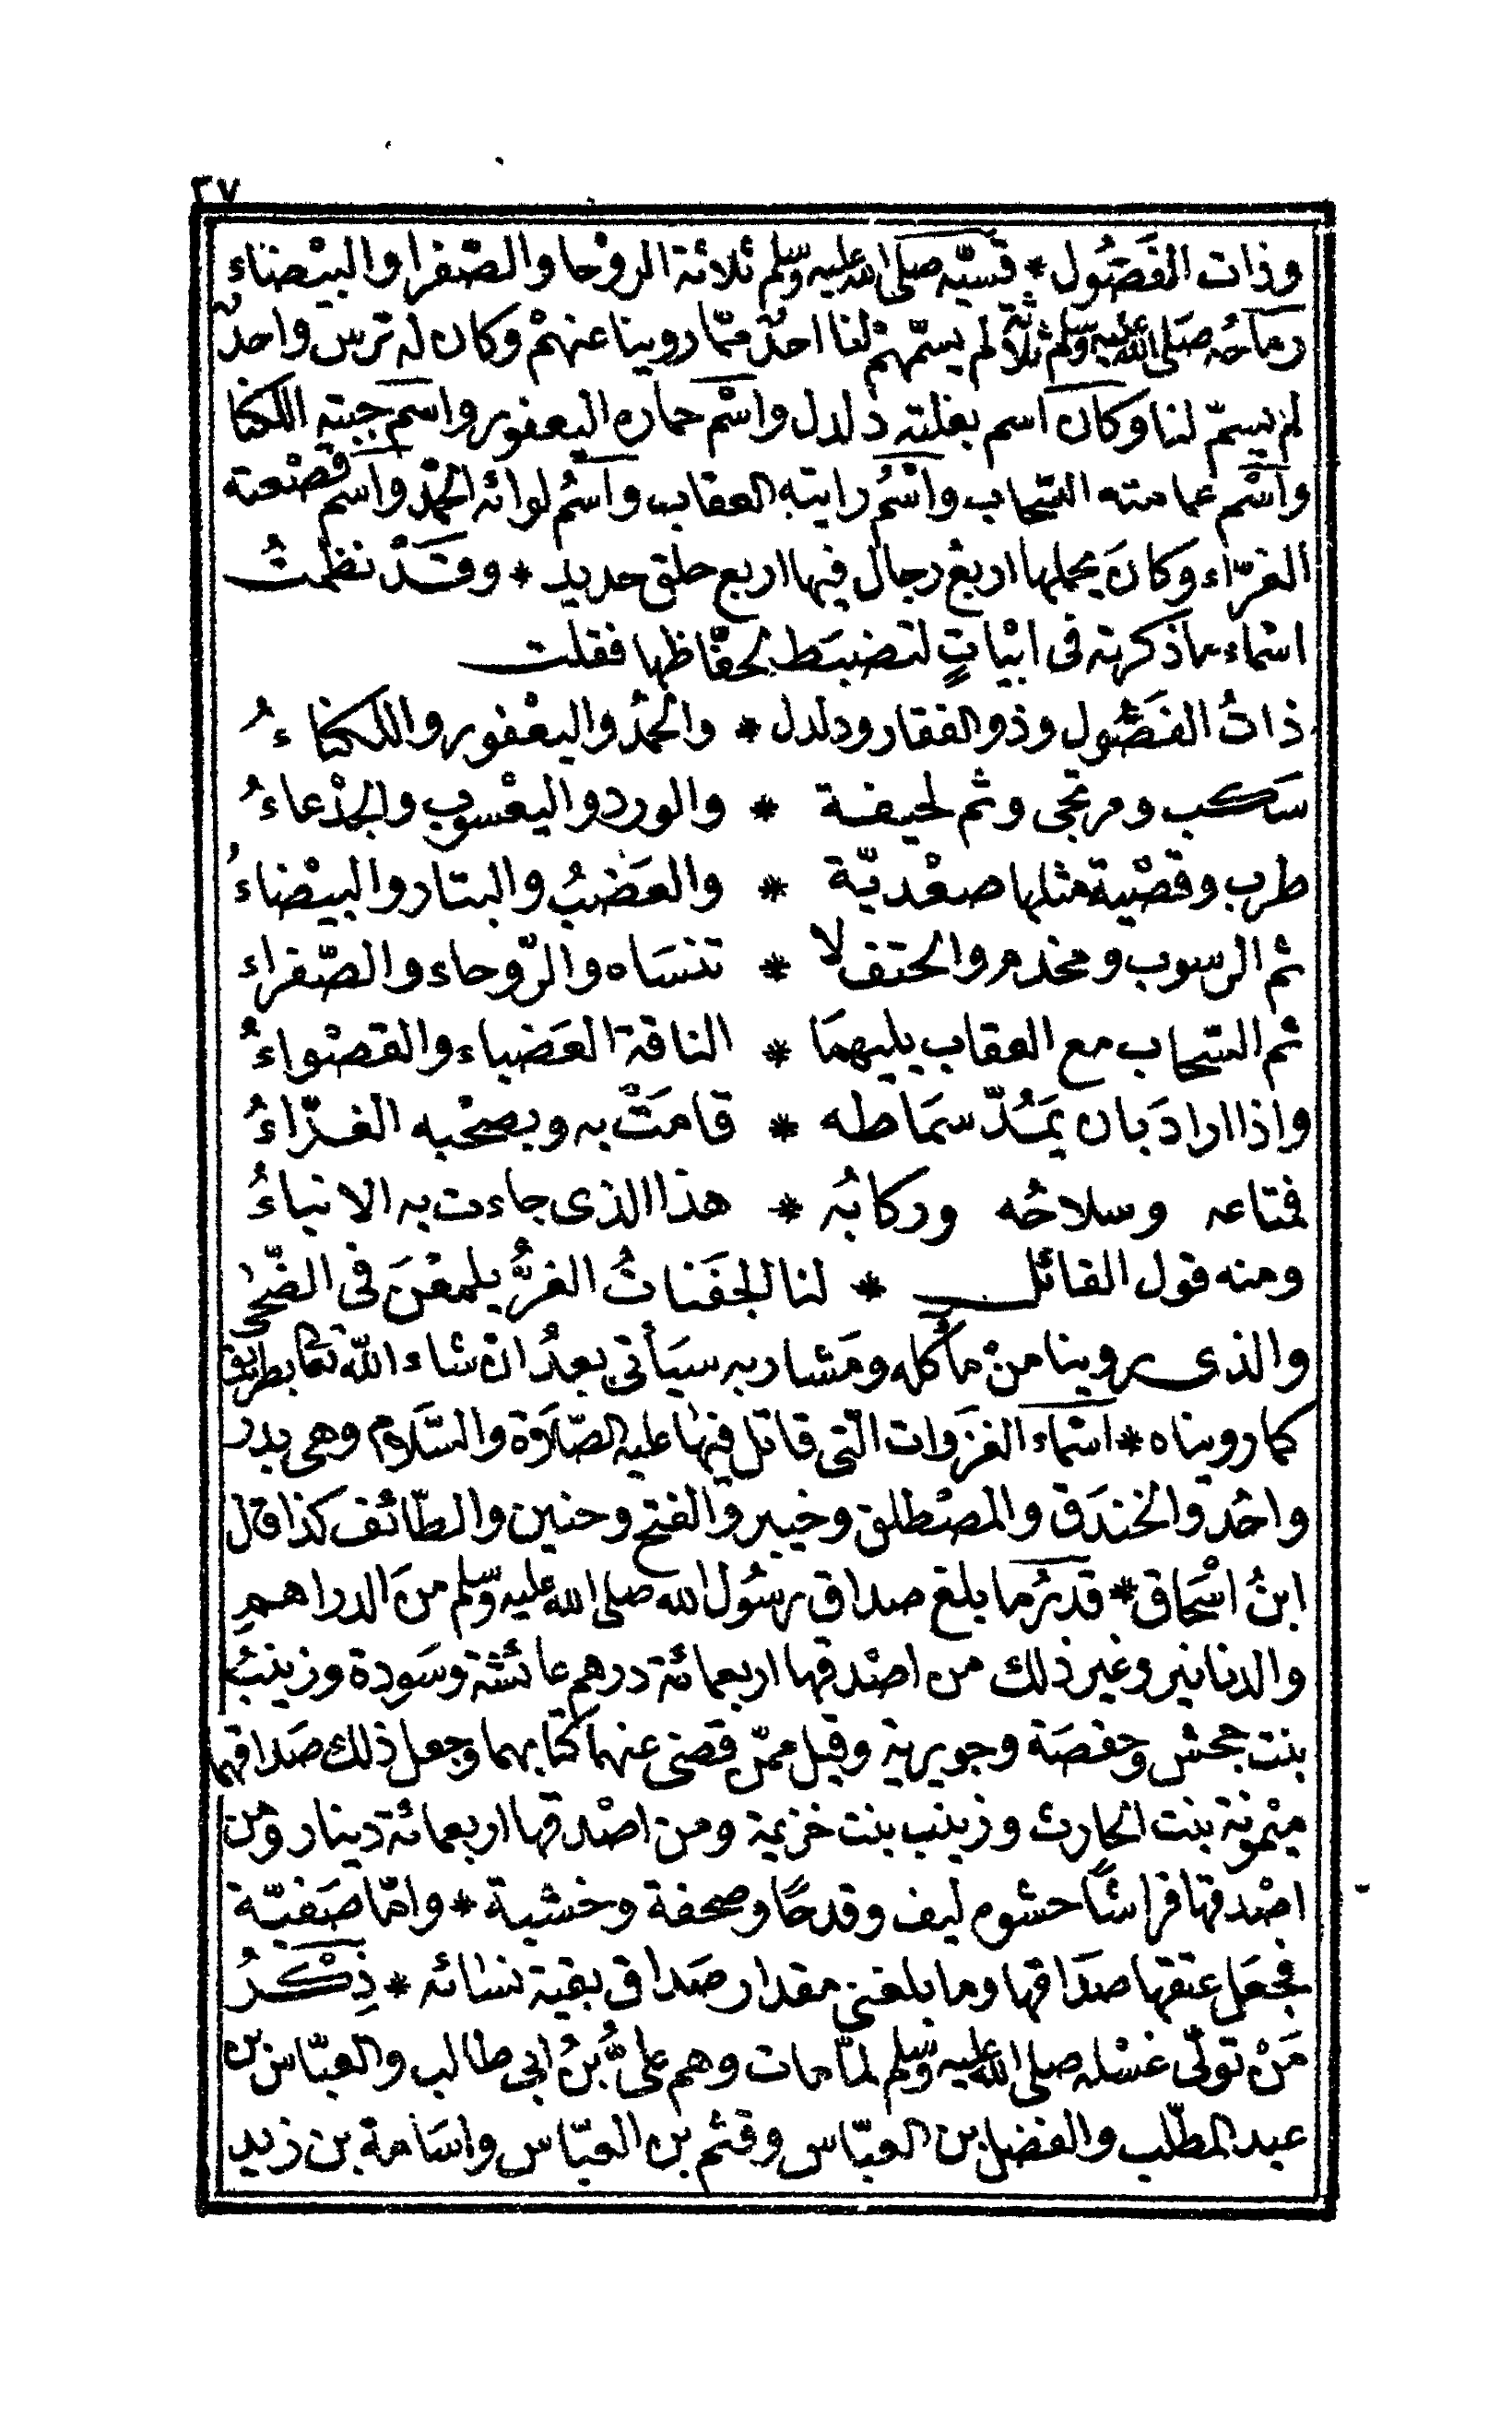 ٢٧
وذات الفَضُول * قسيّه صلى الله عليه وسلم ثلاثة الروْحا والصّفرا والبيْضاء
رماحُه صَلى الله عليه وسلم ثلاثة لم يسمّهمْ لنا احدٌ ممّا روينا عنهمْ وكان له ترس واحدٌ
لم يسمّ لنا وكان اسم بغلته دلدل واسْم حماره اليعفور واسم جبته اللكنا
واسْم عمامته السّحاب واسْمُ رايته العقاب واسمُ لوائه الحمْد واسم قصْعته
الغرّاء وكانَ يحملها اربعُ رجال فيها اربع حلق حديد * وقَدْ نظمتُ
اسْماء ماذكرته فى ابْياتٍ لتضبَط لحفّاظها فقلت
ذاتُ الفَضُول وذو الفقار ودلدل * والحمْدُ واليعْفور واللكناءُ
سَكب ومرتجى وثم لحيفة * والورد واليعْسوب والجدْعاءُ
طرب وقصْية مثلها صعْديّة * والعَضبُ والبتار والبيْضاءُ
ثم الرسوب ومخدم والحتف لا * تنسَاه والرّوحاء والصّفراء
ثم السّحاب مع العقاب يليهمَا * الناقة العَضباء والقصْواءُ
واذا ارادَ بان يَمُدّ سمَاطه * قامَتْ به وبصحْبه الغرّاءُ
فمتاعه وسلاحُه وركابُه * هذا الذى جاءت به الانباءُ
ومنه قول القائل * لنا الجفَناتُ الغرُّ يلمعْنَ فى الضّحى
والذى روينا منْ مأكله ومَشاربه سيَأتى بعدُ ان شاء اللّه تعا بطريق
كما رويناه * اسْماء الغزَوات الّتى قاتل فيها عليه الصّلاة والسَّلام وهى بدر
واحُد والخندَق والمصْطلق وخيبر والفتح وحنين والطّائف كذا قال
ابنُ اسْحاق * قدرُ ما بلغ صداق رسُول الله صلى الله عليه وسلم منَ الدراهمِ
والدنانير وغير ذلك من اصْدقها اربعمائة درهم عائشة وسَودة وزينبُ
بنت جحش وحفصَة وجويرية وقيل ممّن قضى عنهما كتابهما وجعل ذلك صَداقهما
ميْمونة بنت الحارث وزينب بنت خزيمة ومن اصْدقها اربعمائة دينار ومن
اصْدقها فراشًا حشوه ليف وقدحًا وصحفة وخشبة * وامّا صَفيّة
فجعَل عتقها صدَاقها وما بلغنى مقدار صَداق بقية نسائه * ذِكْرُ
مَنْ تولّى غسْله صلى الله عليه وسلم لمّا مات وهم علىُّ بنُ ابى طالب والعبّاس بن
عبد المطّلب والفضل بن العبّاس وقثم بن العبّاس واسَامة بن زيد